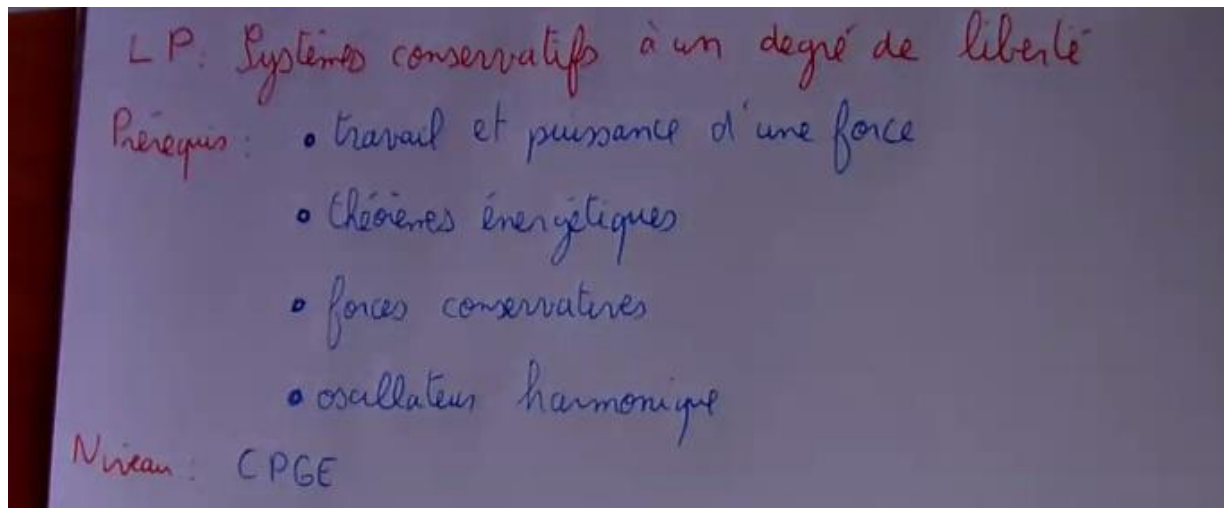 LP: Systèmes conservatifs à un degré de liberté
Prérequis: • travail et puissance d'une force
• théorèmes énergétiques
• forces conservatives
• oscillateur harmonique
Niveau: CPGE